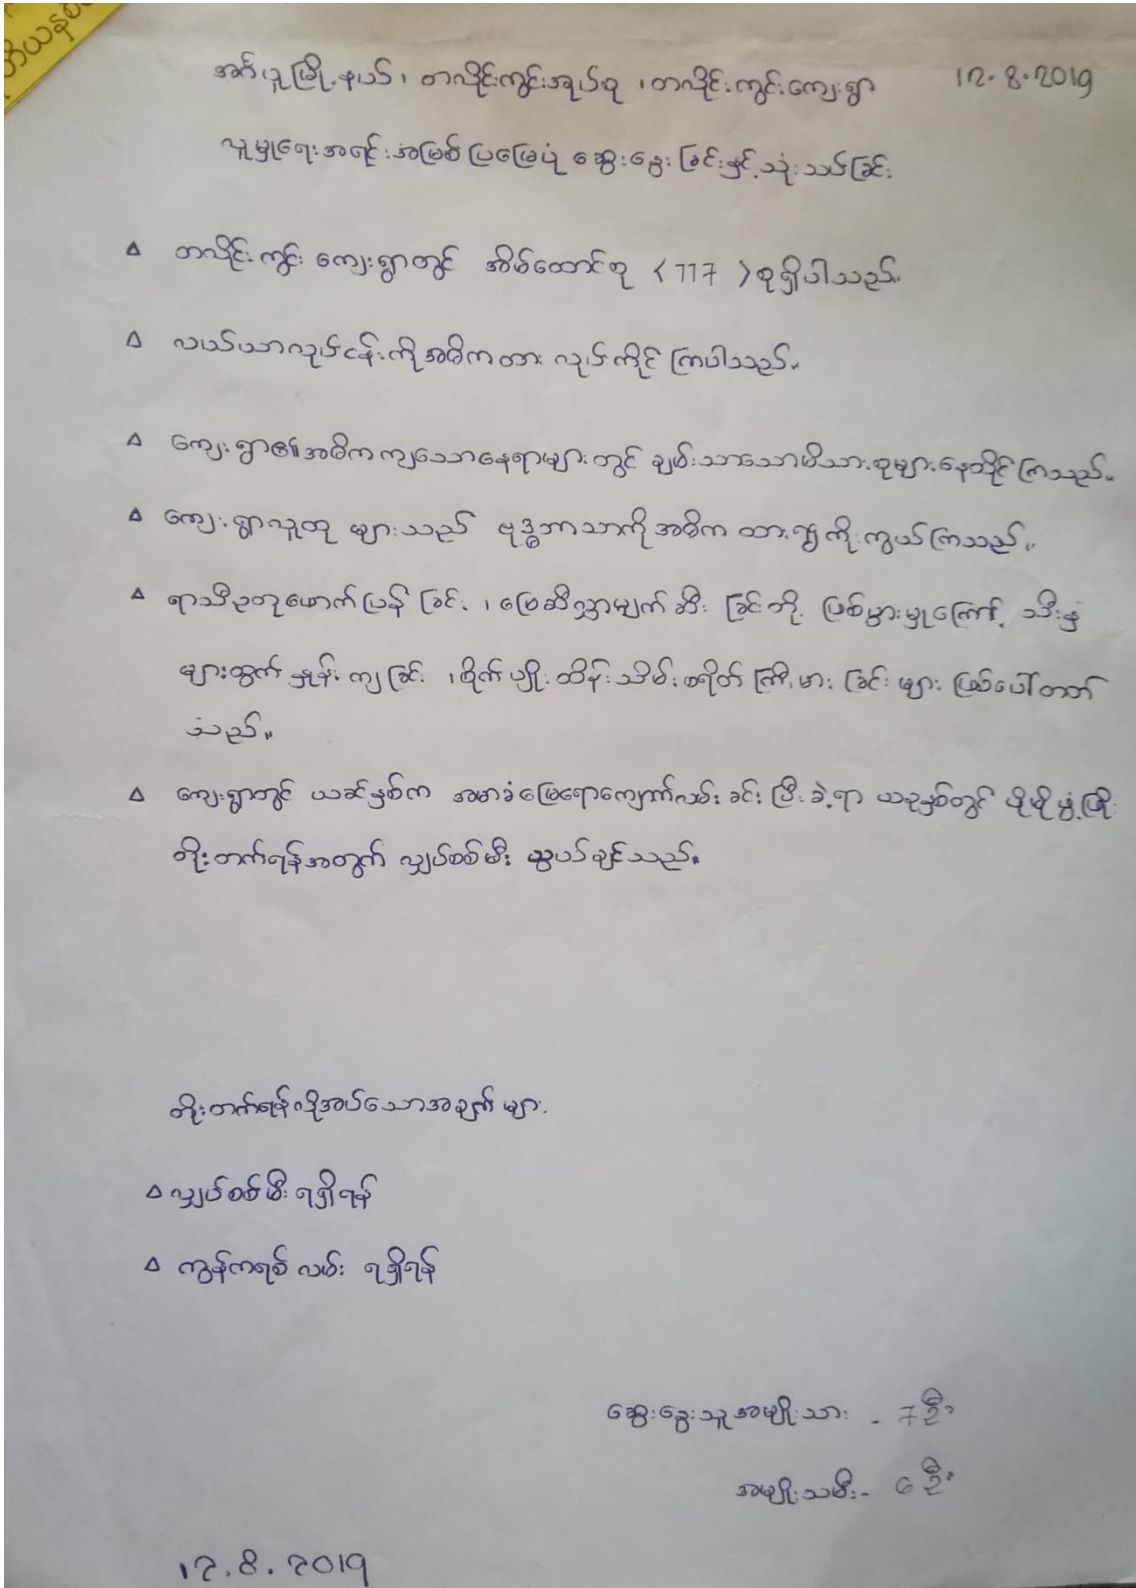 တိယနစ်
အင်္ဂပူမြို့နယ်၊ တလိုင်းကွင်းအုပ်စု ၊ တလိုင်းကွင်းကျေးရွာ 12.8.2019
လူမှုရေးအရင်းအမြစ်ပြမြေပုံ ဆွေးနွေးခြင်းနှင့်သုံးသပ်ခြင်း
တလိုင်းကွင်း ကျေးရွာတွင် အိမ်ထောင်စု <117> စုရှိပါသည်။
လယ်ယာလုပ်ငန်းကိုအဓိကထား လုပ်ကိုင်ကြပါသည်။
ကျေးရွာ၏အဓိကကျသောနေရာများတွင် ချမ်းသာသောမိသားစုများနေထိုင်ကြသည်။
ကျေးရွာလူထုများသည် ဗုဒ္ဓဘာသာကိုအဓိကထား၍ကိုးကွယ်ကြသည်။
ရာသီဥတုဖောက်ပြန်ခြင်း၊ မြေဆီလွှာပျက်ဆီးခြင်းတို့ ဖြစ်ပွားမှုကြောင့် သီးနှံ
များထွက်နှုန်းကျခြင်း ၊စိုက်ပျိုးထိန်းသိမ်းစရိတ်ကြီးမားခြင်းများ ဖြစ်ပေါ်တတ်
သည်။
ကျေးရွာတွင် ယခင်နှစ်က အမာခံမြေရောကျောက်လမ်းခင်းပြီးခဲ့ရာ ယခုနှစ်တွင် ပိုမိုဖွံ့ဖြိုး
တိုးတက်ရန်အတွက် လျှပ်စစ်မီး သွယ်ချင်သည်။
တိုးတက်ရန်လိုအပ်သောအချက်များ
လျှပ်စစ်မီးရရှိရန်
ကွန်ကရစ်လမ်း ရရှိရန်
ဆွေးနွေးသူအမျိုးသား - 7 ဦး
အမျိုးသမီး - 6 ဦး
12.8.2019